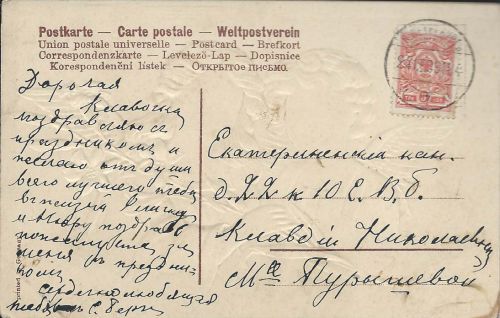 Postkarte – Carte postale – Weltpostverein
Union postale universelle – Postcard – Brefkort
Correspondenzkarte – Levelező-Lap – Dopisnice
Korespondenční lístek – Открытое письмо.
Дорогая
Клавочка
поздравляю съ
праздникомъ и
желаю отъ души
всего лучшаго тебѣ
въ жизни
и Нюру поздравь
пожалуйста за
меня съ праздни-
комъ
сердечно любящая
тебя С.
Екатерининскій кан.
д. 22 к 10 Е. В. Б.
Клавдіи Николаевнѣ
Турышевой